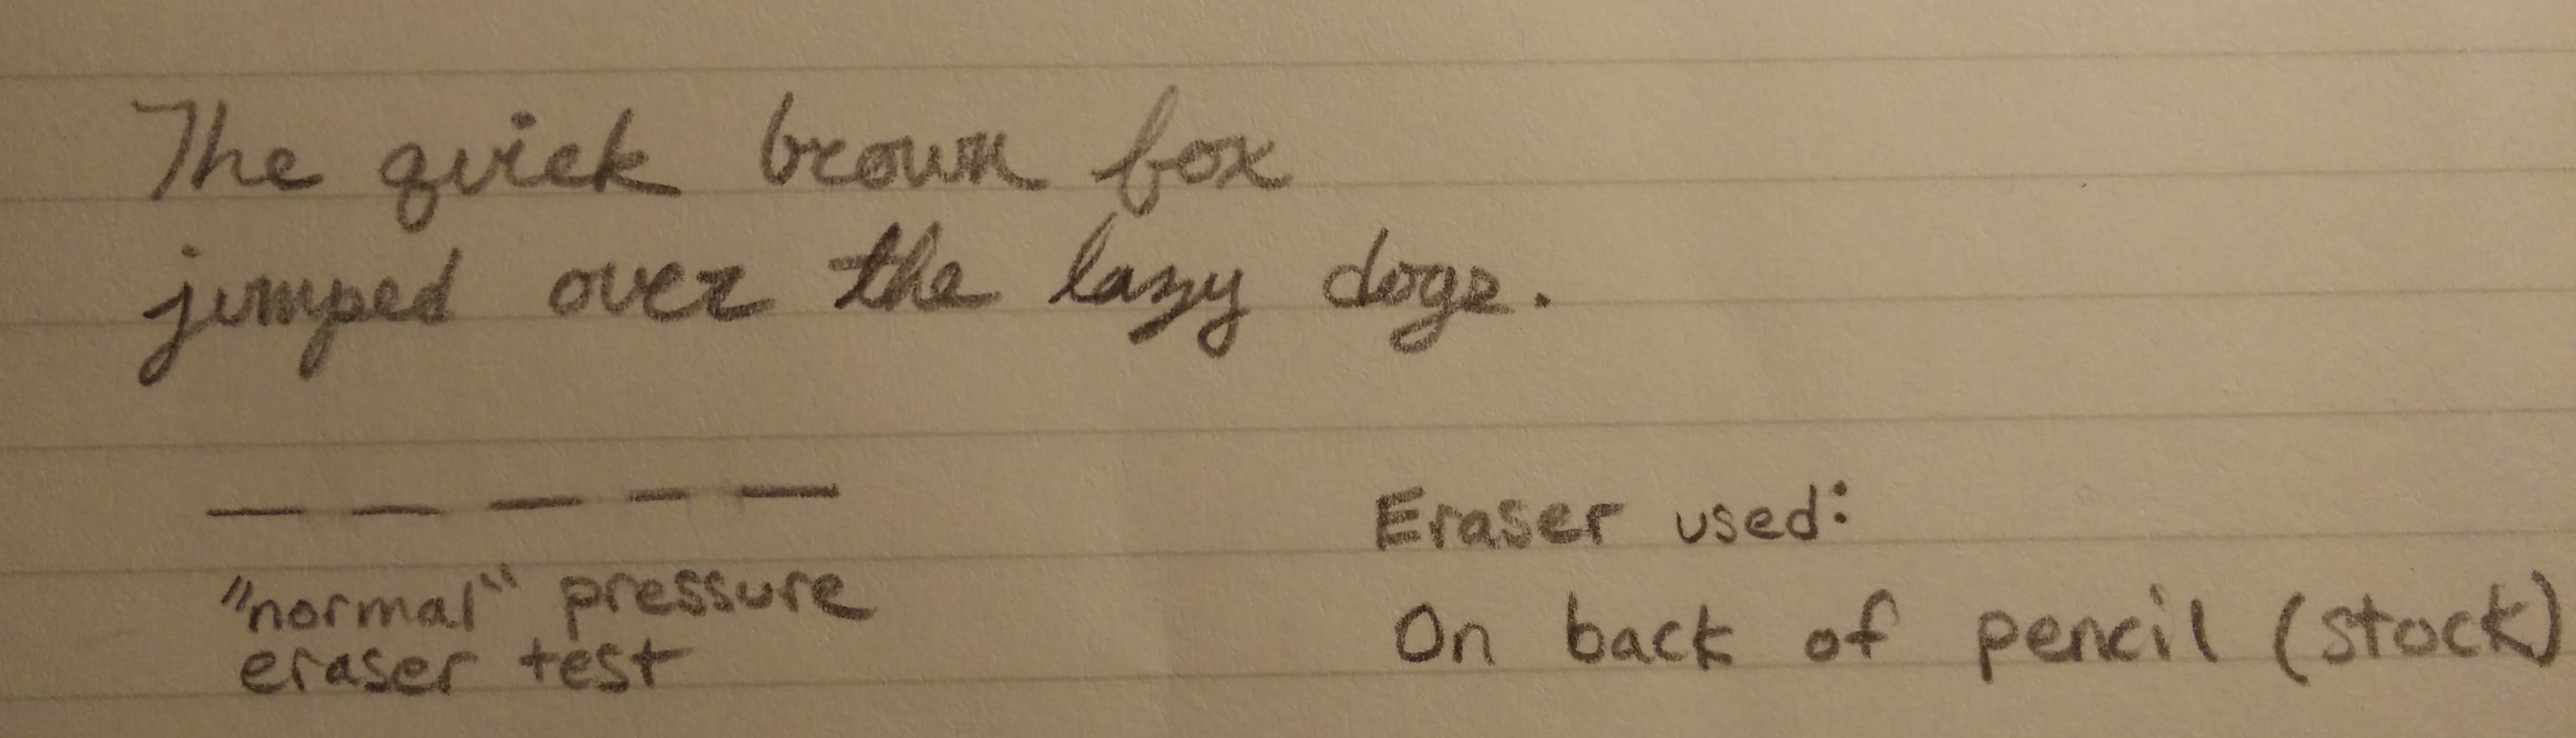 The quick brown fox
jumped over the lazy dogs.
"normal" pressure
eraser test
Eraser used:
On back of pencil (stock)